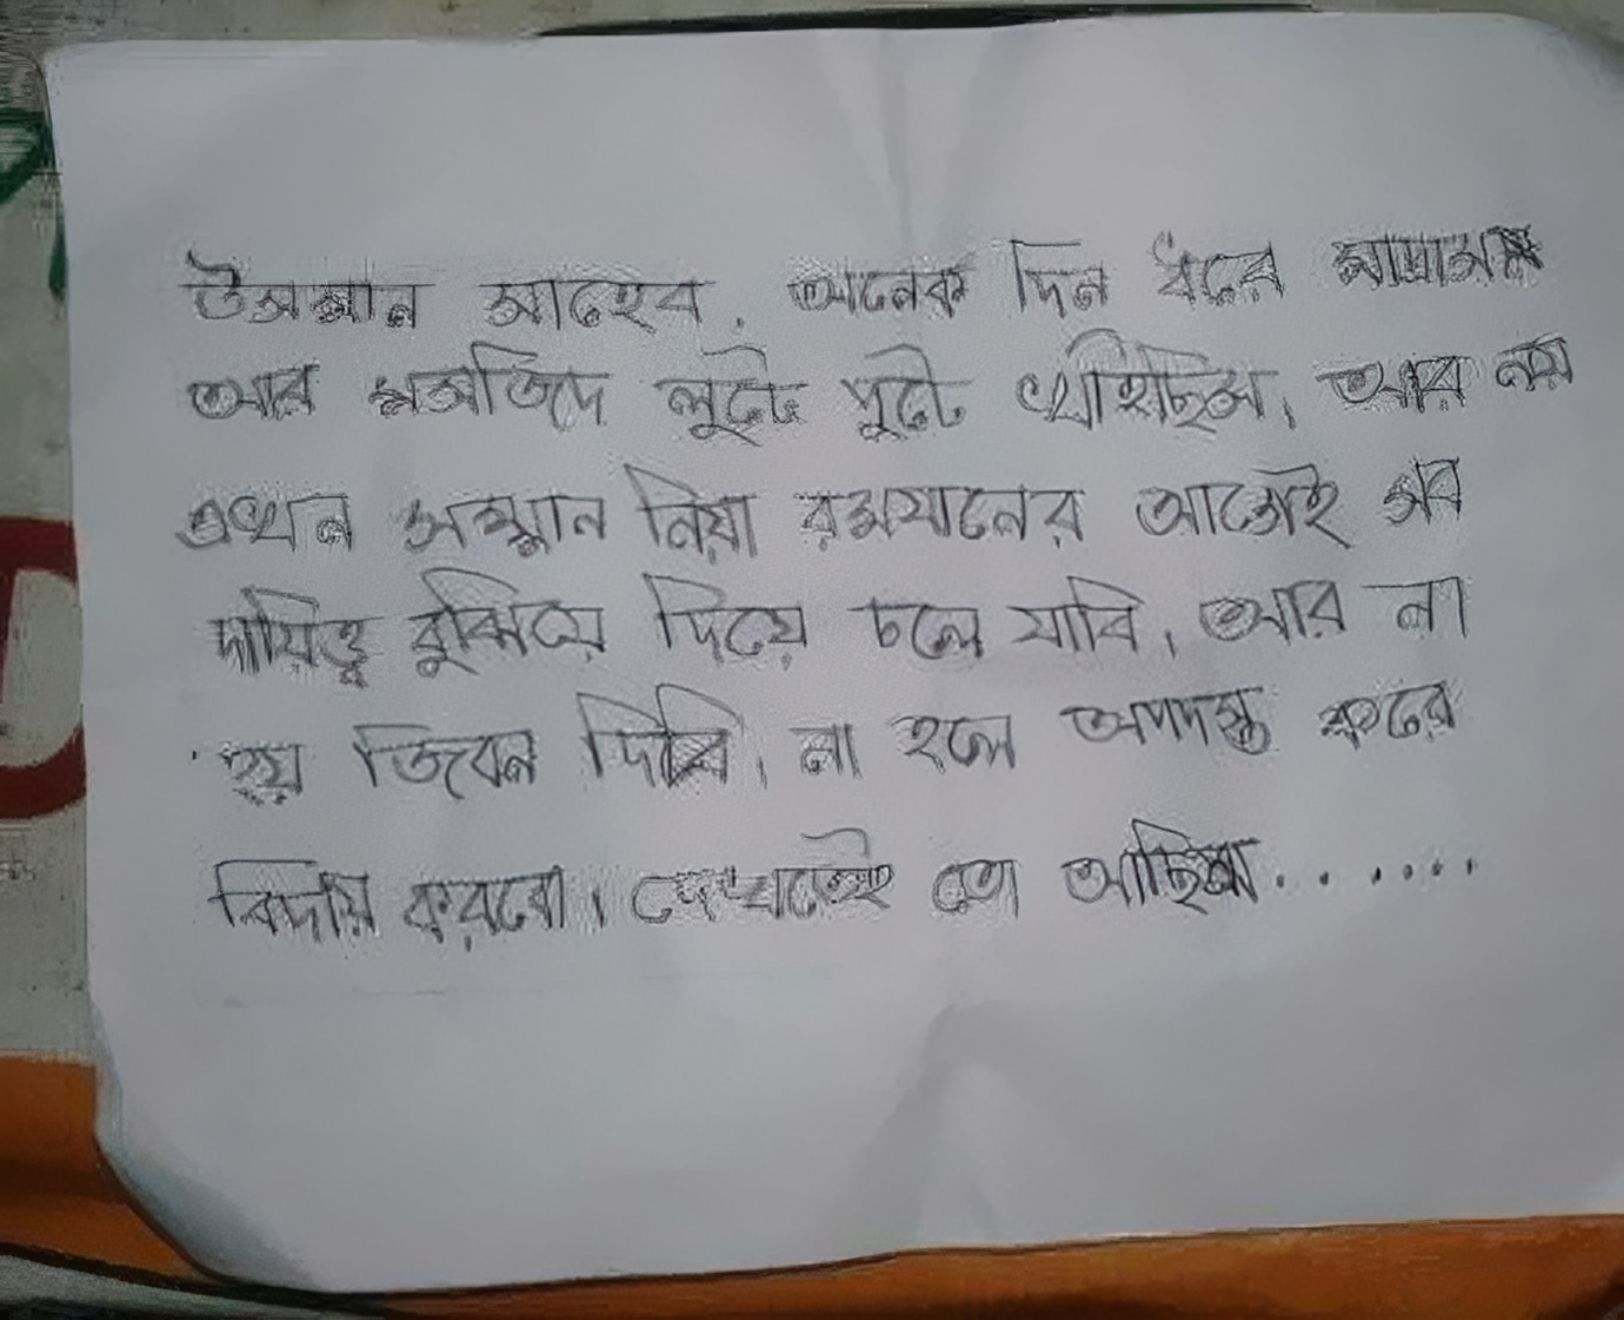 উসমান সাহেব. অনেক দিন ধরে মাদ্রাসা
আর মসজিদে লুটে পুটে খাইছিস। আর নয়
এখন সম্মান নিয়া রমযানের আগেই সব
দায়িত্ব বুঝিয়ে দিয়ে চলে যাবি। আর না
হয় জিবন দিবি। না হলে অপদস্ত করে
বিদায় করবো। দেখতেই তো আছিস.......